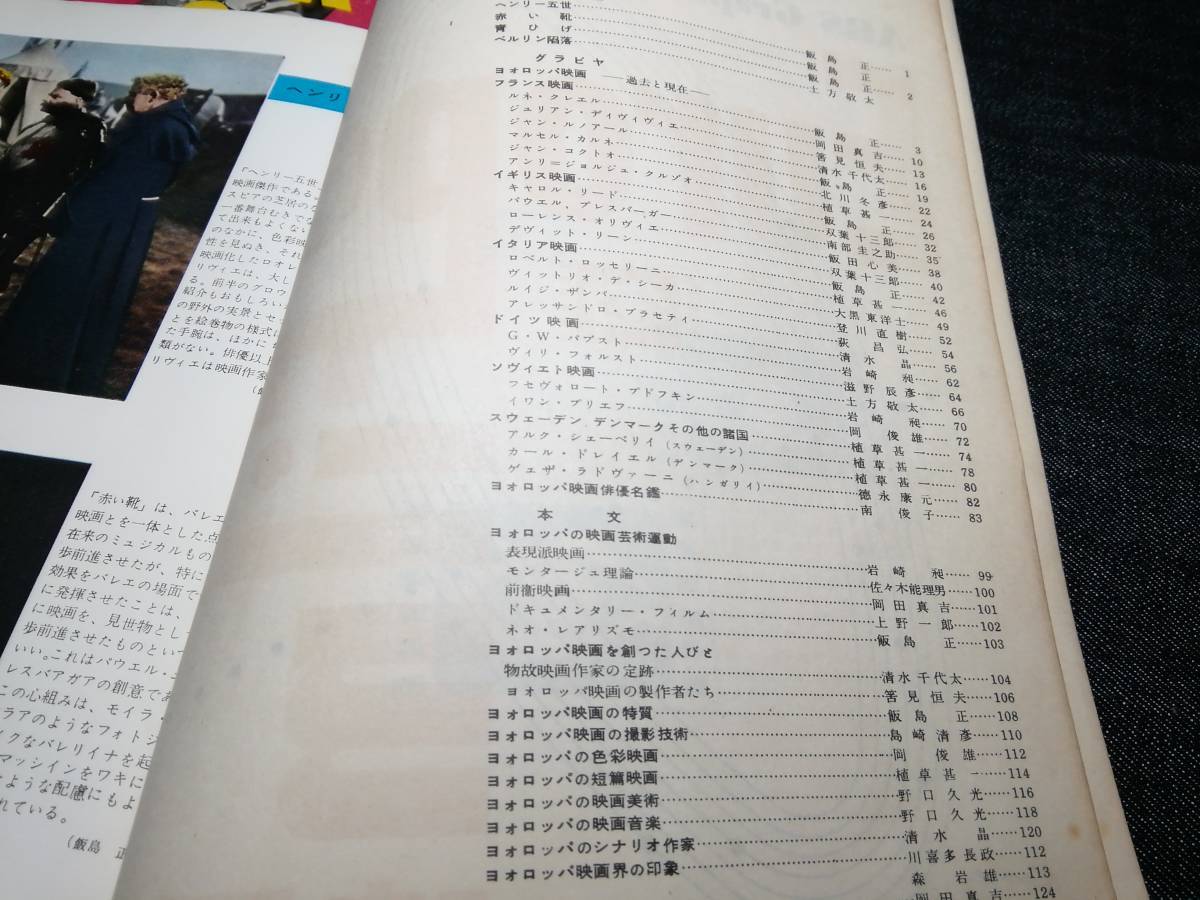 ヘンリ
「ヘンリー五世
映画傑作である
スピアの芝居の
一番舞台むきでな
て出来もよくない
のなかに、色彩映
性を見ぬき、それ
映画化したロオレ
リヴィエは、大し
る。前半のグロウ
紹介もおもしろい
の野外の実景とセ
とを絵巻物の様式に
た手腕は、ほかに
類がない。俳優以上
リヴィエは映画作家
「赤い靴」は、バレエ
映画とを一体とした点
在来のミュジカルもの
歩前進させたが、特に
効果をバレエの場面で
に発揮させたことは、
に映画を、見世物とし
歩前進させたものといつ
いい。これはパウエル・
レスバアガアの創意であ
この心組みは、モイラ・
ラアのようなフォトジ
イクなバレリイナを起
マッシインをワキに
ような配慮にもよ
れている。
(飯島 正
ヘンリー五世……飯島 正……1
赤い靴……飯島 正
青ひげ……飯島 正
ベルリン陥落……土方敬太……2
グラビヤ
ヨォロッパ映画 ――過去と現在――
フランス映画……飯島 正……3
ルネ・クレエル……岡田真吉……10
ジュリアン・デイヴィヴィエ……筈見恒夫……13
ジャン・ルノアール……清水千代太……16
マルセル・カルネ……飯島 正……19
ジャン・コクトオ……北川冬彦……22
アンリ=ジョルジュ・クルゾオ……植草甚一……24
イギリス映画……飯島 正……26
キャロル・リード……双葉十三郎……32
パウエル、プレスバーガー……南部圭之助……35
ローレンス・オリヴィエ……飯田心美……38
デヴィット・リーン……双葉十三郎……40
イタリア映画……飯島 正……42
ロベルト・ロッセリーニ……植草甚一……46
ヴィットリオ・デ・シーカ……大黒東洋士……49
ルイジ・ザンパ……登川直樹……52
アレッサンドロ・ブラセティ……荻 昌弘……54
ドイツ映画……清水 晶……56
G・W・パブスト……岩崎 昶……62
ヴィリ・フォルスト……滋野辰彦……64
ソヴィエト映画……土方敬太……66
フセヴォロート・プドフキン……岩崎 昶……70
イワン・プリエフ……岡 俊雄……72
スウェーデン、デンマークその他の諸国……植草甚一……74
アルク・シェーベリイ(スウェーデン)……植草甚一……78
カール・ドレイエル(デンマーク)……植草甚一……80
ゲェザ・ラドヴァーニ(ハンガリイ)……徳永康元……82
ヨォロッパ映画俳優名鑑……南 俊子……83
本 文
ヨォロッパの映画芸術運動
表現派映画……岩崎 昶……99
モンタージュ理論……佐々木能理男……100
前衛映画……岡田真吉……101
ドキュメンタリー・フィルム……上野一郎……102
ネオ・レアリズモ……飯島 正……103
ヨォロッパ映画を創つた人びと
物故映画作家の定跡……清水千代太……104
ヨォロッパ映画の製作者たち……筈見恒夫……106
ヨォロッパ映画の特質……飯島 正……108
ヨォロッパ映画の撮影技術……島崎清彦……110
ヨォロッパの色彩映画……岡 俊雄……112
ヨォロッパの短篇映画……植草甚一……114
ヨォロッパの映画美術……野口久光……116
ヨォロッパの映画音楽……野口久光……118
ヨォロッパのシナリオ作家……清水 晶……120
ヨォロッパ映画界の印象……川喜多長政……112
森 岩雄……113
岡田真吉……124